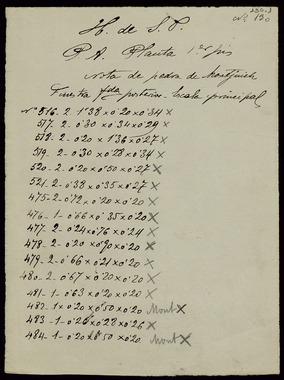 Nº 130
H. de S. P.
P. A. Planta 1er pis
Nota de pedra de Montjuich
Finestra fda posterior. escala principal
Nº 516 - 2 - 1'38 x 0'20 x 0'34 x
517 - 2 - 0'30 x 0'34 x 0'24 x
518 - 2 - 0'20 x 1'36 x 0'27 x
519 - 2 - 0'30 x 0'28 x 0'34 x
520 - 2 - 0'20 x 0'50 x 0'27 x
521 - 2 - 0'38 x 0'35 x 0'27 x
475 - 2 - 0'72 x 0'20 x 0'20 x
476 - 1 - 0'66 x 0'35 x 0'20 x
477 - 2 - 0'24 x 0'76 x 0'24 x
478 - 2 - 0'20 x 0'90 x 0'20 x
479 - 2 - 0'66 x 0'21 x 0'20 x
480 - 2 - 0'67 x 0'20 x 0'20 x
481 - 1 - 0'63 x 0'20 x 0'20 x
482 - 1 x 0'20 x 0'50 x 0'20 Mont x
483 - 1 - 0'26 x 0'28 x 0'26 x
484 - 1 - 0'20 x 0'50 x 0'20 Mont x